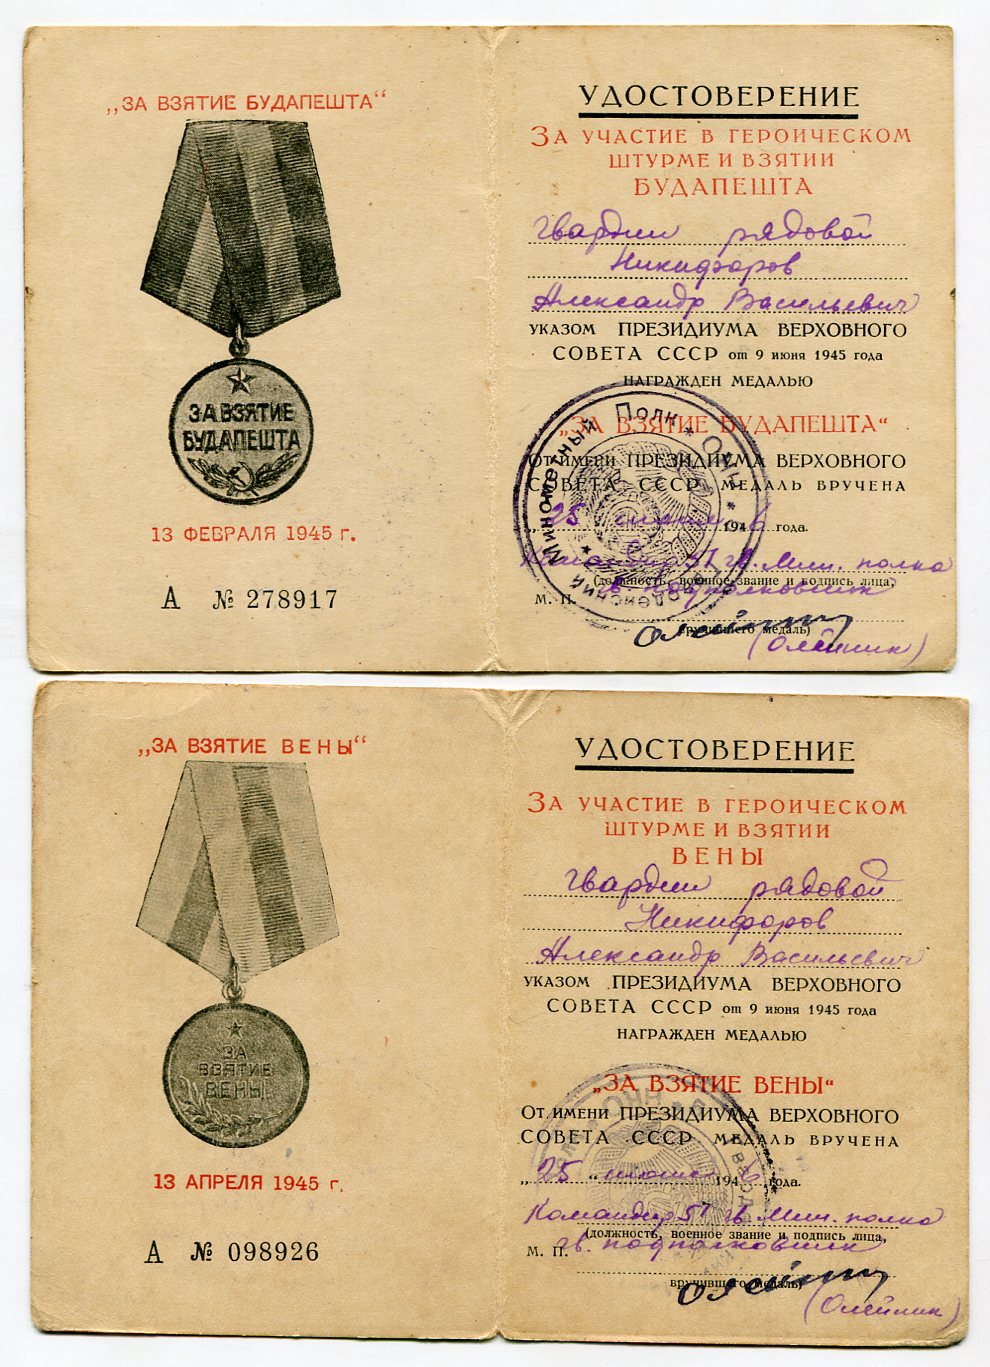 „ЗА ВЗЯТИЕ БУДАПЕШТА“
ЗА ВЗЯТИЕ
БУДАПЕШТА
13 ФЕВРАЛЯ 1945 г.
А № 278917
УДОСТОВЕРЕНИЕ
ЗА УЧАСТИЕ В ГЕРОИЧЕСКОМ
ШТУРМЕ И ВЗЯТИИ
БУДАПЕШТА
Гвардии рядовой
Никифоров
Александр Васильевич
УКАЗОМ ПРЕЗИДИУМА ВЕРХОВНОГО
СОВЕТА СССР от 9 июня 1945 года
НАГРАЖДЕН МЕДАЛЬЮ
„ЗА ВЗЯТИЕ БУДАПЕШТА“
От имени ПРЕЗИДИУМА ВЕРХОВНОГО
СОВЕТА СССР МЕДАЛЬ ВРУЧЕНА
„25 “ 1946 года.
Командир 57 гв. Мин. полка
(должность, военное звание и подпись лица,
М. П. гв. подполковник
вручившего медаль)
(Олейник)
Минометный Полк * ОМН *
„ЗА ВЗЯТИЕ ВЕНЫ“
ЗА
ВЗЯТИЕ
ВЕНЫ
13 АПРЕЛЯ 1945 г.
А № 098926
УДОСТОВЕРЕНИЕ
ЗА УЧАСТИЕ В ГЕРОИЧЕСКОМ
ШТУРМЕ И ВЗЯТИИ
ВЕНЫ
Гвардии рядовой
Никифоров
Александр Васильевич
УКАЗОМ ПРЕЗИДИУМА ВЕРХОВНОГО
СОВЕТА СССР от 9 июня 1945 года
НАГРАЖДЕН МЕДАЛЬЮ
„ЗА ВЗЯТИЕ ВЕНЫ“
От имени ПРЕЗИДИУМА ВЕРХОВНОГО
СОВЕТА СССР МЕДАЛЬ ВРУЧЕНА
„25 “ 1946 года.
Командир 57 гв. Мин. полка
(должность, военное звание и подпись лица,
М. П. гв. подполковник
вручившего медаль)
(Олейник)